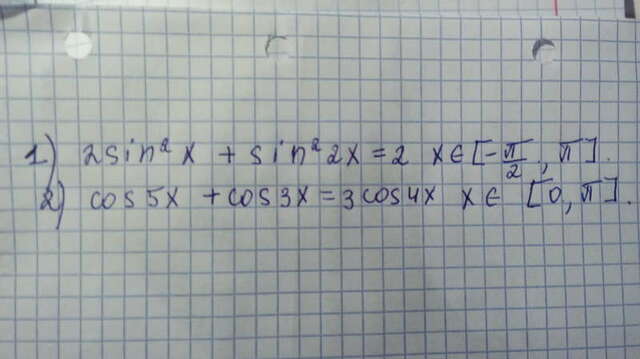 1) 2sin²x + sin²2x = 2 x ∈ [-π/2, π].
2) cos5x + cos3x = 3cos4x x ∈ [0, π].